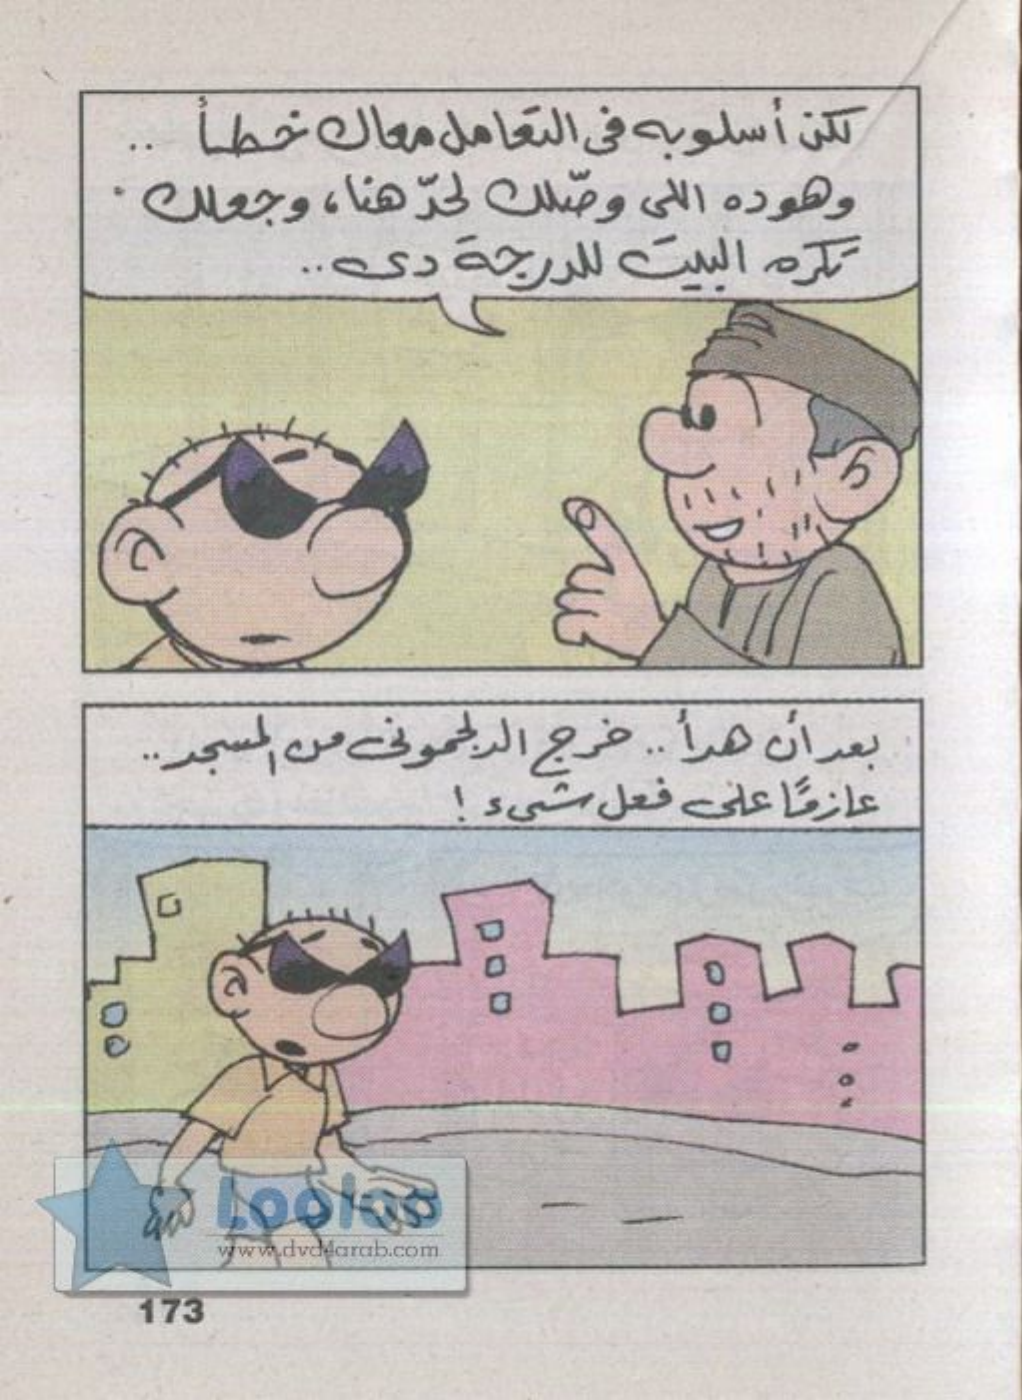 لكن أسلوبه فى التعامل معاك خطأ ..
وهو ده اللى وصّلك لحدّ هنا، وجعلك
تكره البيت للدرجة دى ..
بعد أن هدأ .. خرج الدلجمونى من المسجد ..
عازمًا على فعل شىء !
Looloo
www.dvd4arab.com
173